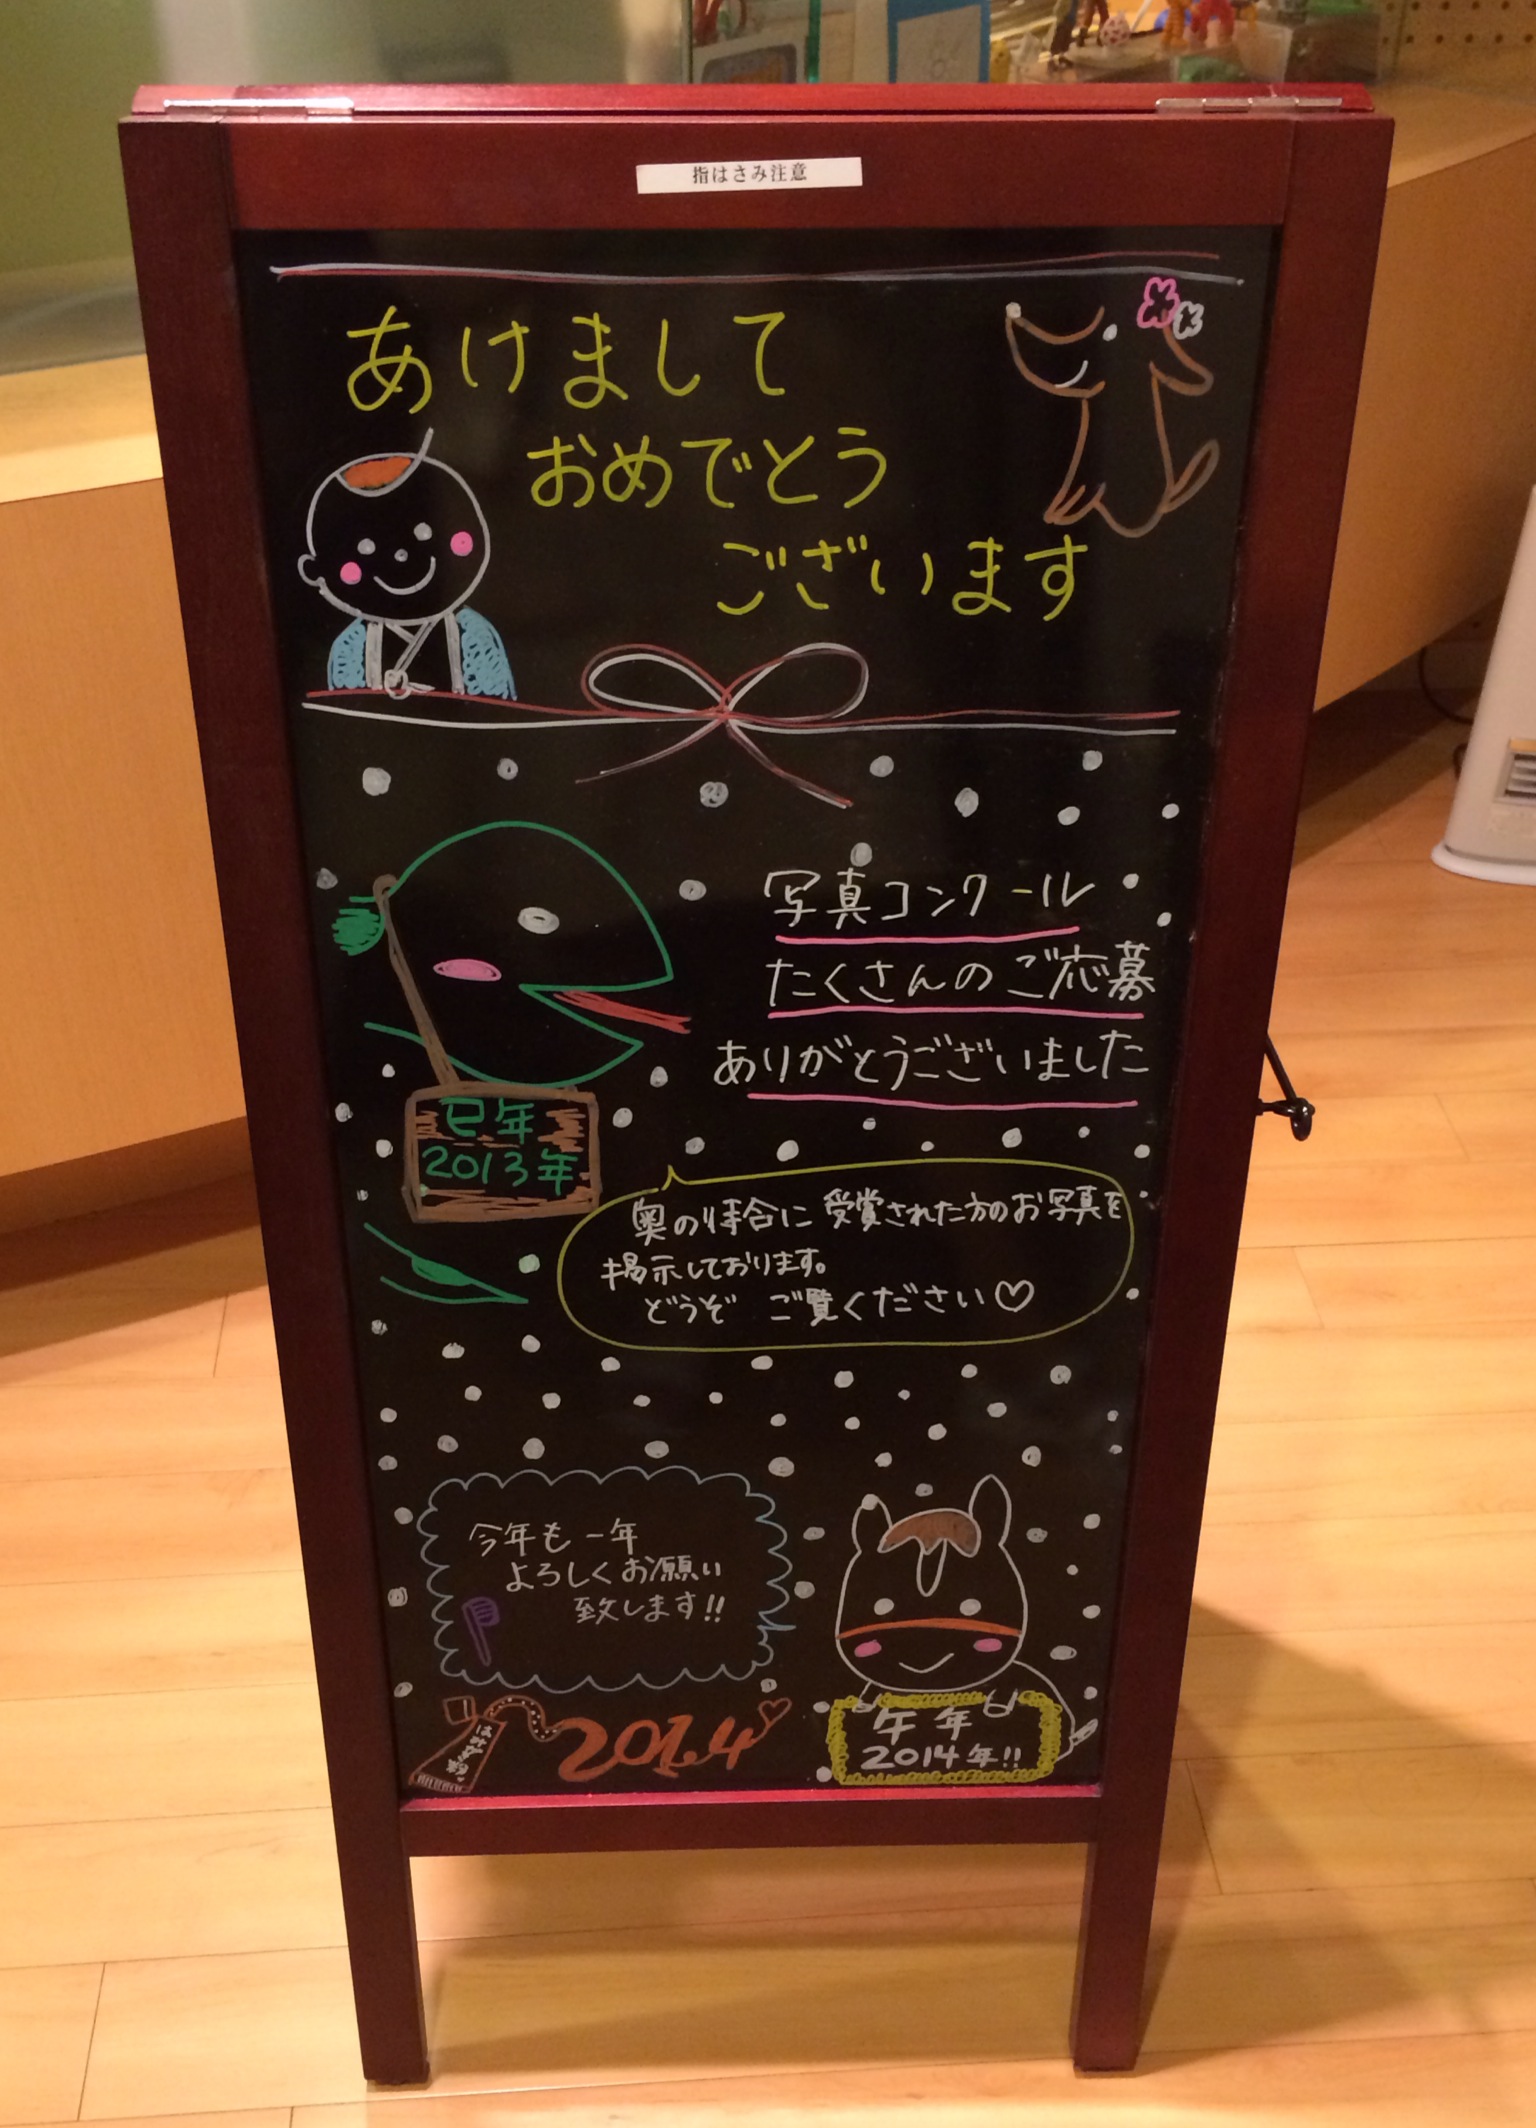 指はさみ注意
あけまして
おめでとう
ございます
写真コンクール
たくさんのご応募
ありがとうございました
巳年
2013年
奥の待合に受賞された方のお写真を
掲示しております。
どうぞ ご覧ください♡
今年も一年
よろしくお願い
致します!!
はみがき粉
2014
午年
2014年!!